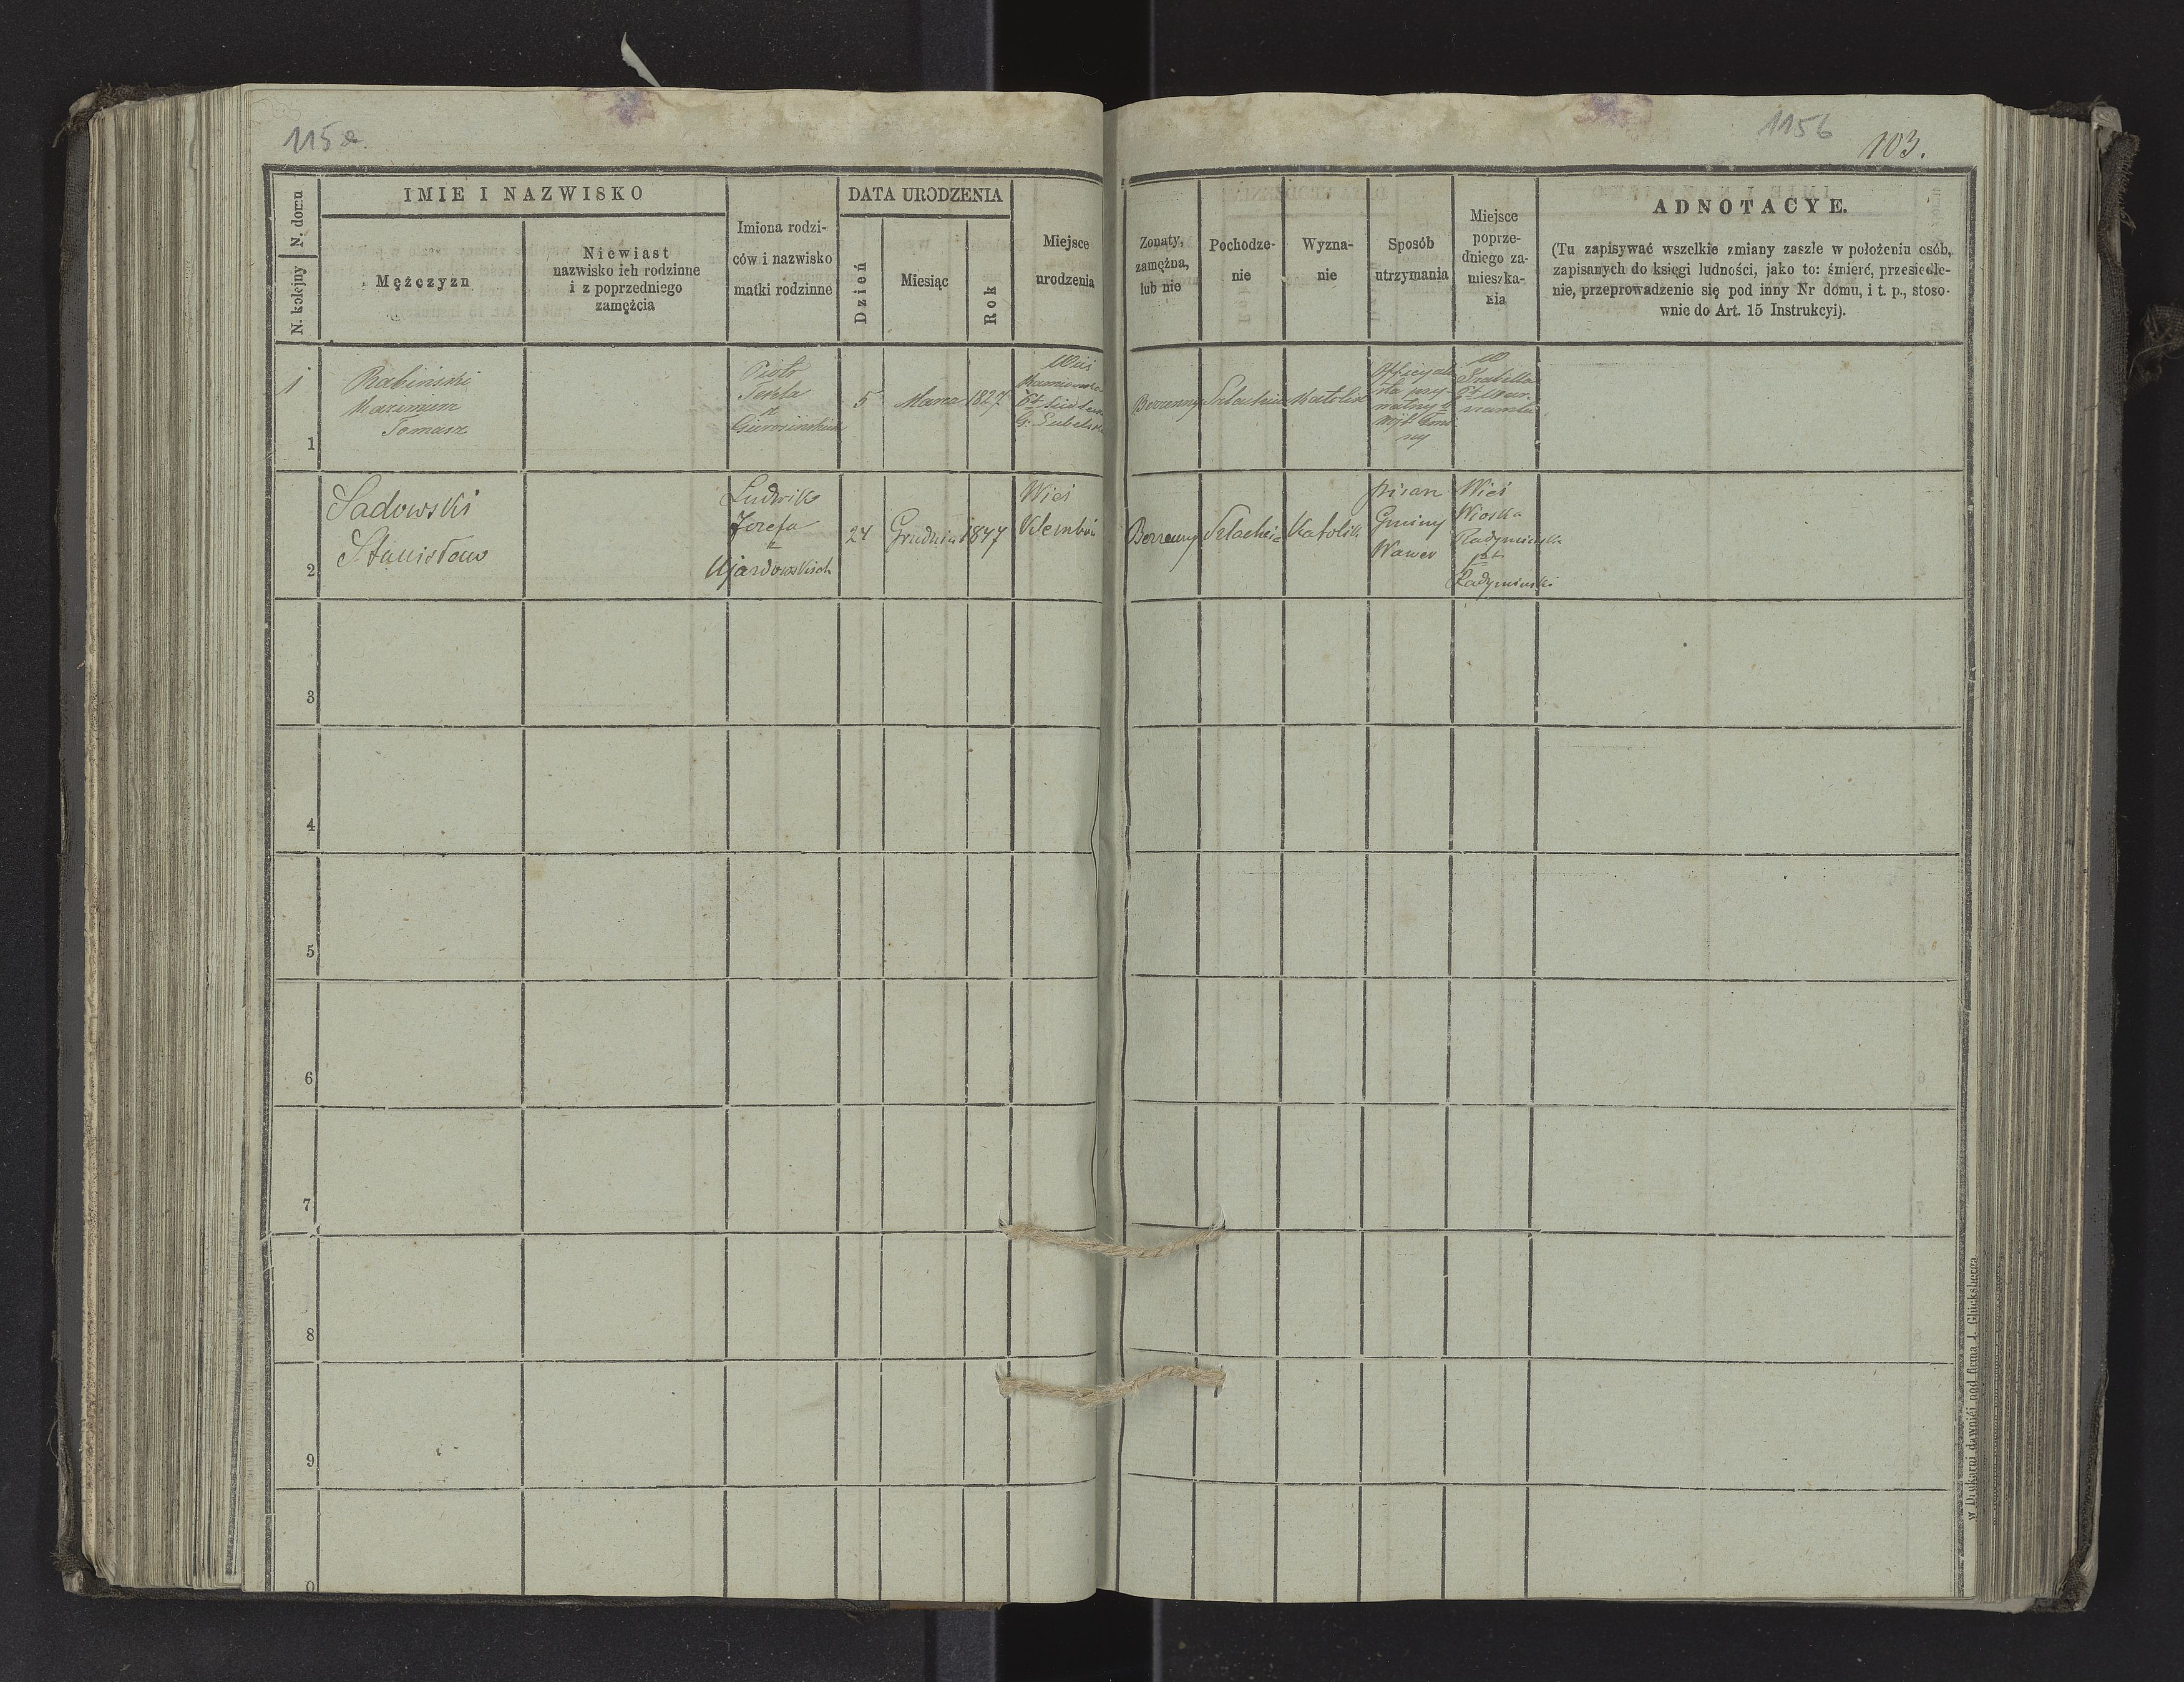 115a.
1156
103.
N. domu
N. kolejny
IMIE I NAZWISKO
Mężczyzn
Niewiast
nazwisko ich rodzinne
i z poprzedniego
zamęźcia
Imiona rodzi-
ców i nazwisko
matki rodzinne
DATA URODZENIA
Dzień
Miesiąc
Rok
Miejsce
urodzenia
Zonaty,
zamężna,
lub nie
Pochodze-
nie
Wyzna-
nie
Sposób
utrzymania
Miejsce
poprze-
dniego za-
mieszka-
nia
ADNOTACYE.
(Tu zapisywać wszelkie zmiany zaszłe w położeniu osób,
zapisanych do księgi ludności, jako to: śmierć, przesiedle-
nie, przeprowadzenie się pod inny Nr domu, i t. p., stoso-
wnie do Art. 15 Instrukcyi).
1
1
Rabinski
Maximien
Tomasz
Piotr
Tekla
z
5
Marca
1827
Wieś
G: Lubelska
Bezzenny
Szlachcic
Katolik
wójt Gmi
ny
w
Izabella
2
Sadowski
Stanisław
Ludwik
Jozefa
z
Ujazdowskich
24
Grudnia
1847
Wieś
Klembów
Bezzenny
Szlachcic
Katolik
pisarz
Gminy
Wawer
Wieś
Wioska
Radyminska
pt
Radyminski
3
4
5
6
7
8
9
0
w Drukarni dawniéj pod firmą J. Glücksberga